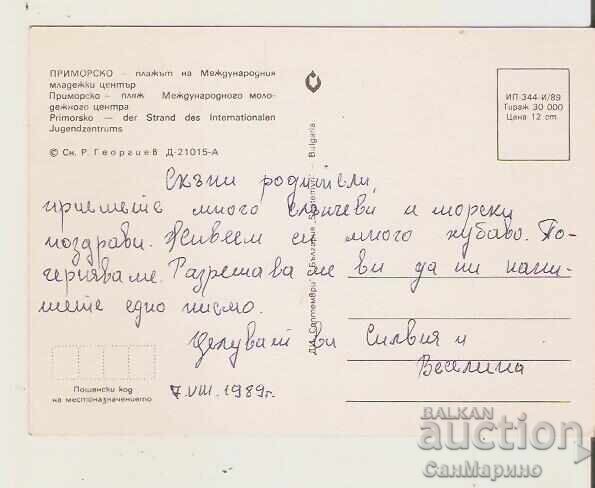 ПРИМОРСКО – плажът на Международния
младежки център
Приморско – пляж Международного моло-
дежного центра
Primorsko — der Strand des Internationalen
Jugendzentrums
© Сн. Р. Георгиев Д-21015-А
ИП-344-И/89
Тираж 30 000
Цена 12 ст.
ДИ „Септември“ България „Septemvri“ – Bulgaria
Скъпи родители,
приемете много слънчеви и морски
поздрави. Живеем си много хубаво. По-
черняваме. Разрешаваме ви да ни напи-
шете едно писмо.
Целуват ви Силвия и
Веселина
7.VIII.1989г.
Пощенски код
на местоназначението
BALKAN
auction
СанМарино